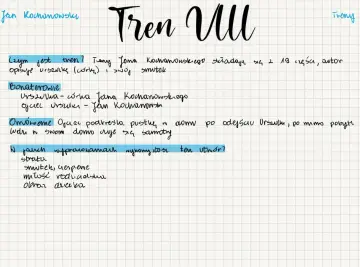 Jan Kochanowski
Tren VIII
Treny
Czym jest tren? Treny Jana Kochanowskiego składają się z 19 części, autor
opisuje Urszulkę (córkę) i swój smutek
Bohaterowie
Urszulka - córka Jana Kochanowskiego
ojciec Urszulki - Jan Kochanowski
Omówienie Ojciec podkreśla pustkę w domu po odejściu Urszulki, po mimo pobytu
ludzi w swoim domu czuje się samotny
W jakich wypracowaniach wykorzystać ten utwór?
strata
smutek, cierpienie
miłość rodzicielska
obraz dziecka